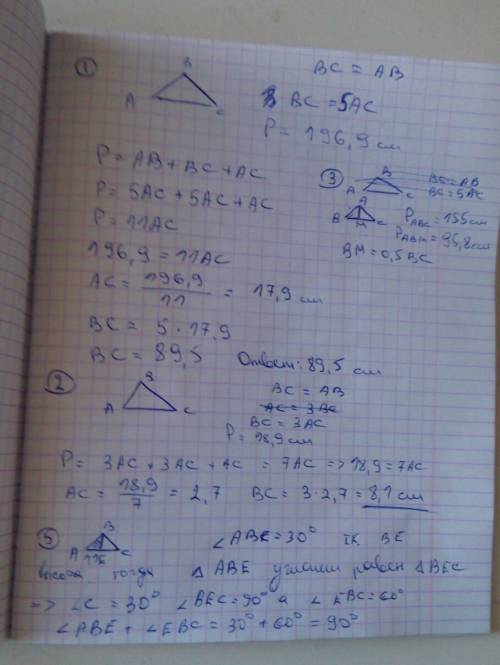 ①
B
A
C
BC = AB
BC = 5AC
P = 196,9 см
P = AB + BC + AC
P = 5AC + 5AC + AC
P = 11AC
196,9 = 11AC
AC = 196,9 / 11 = 17,9 см
BC = 5 · 17,9
BC = 89,5
Ответ: 89,5 см
③
B
A
C
BC = AB
BC = 5AC
A
B
M
C
P ABC = 155 см
P ABM = 95,8 см
BM = 0,5 BC
②
B
A
C
BC = AB
AC = 3BC
BC = 3AC
P = 18,9 см
P = 3AC + 3AC + AC = 7AC => 18,9 = 7AC
AC = 18,9 / 7 = 2,7 BC = 3 · 2,7 = 8,1 см
⑤
B
A
C
∠ABE = 30° тк BE
высота тогда △ABE углами равен △BEC
=> ∠C = 30° ∠BEC = 90° а ∠EBC = 60°
∠ABE + ∠EBC = 30° + 60° = 90°